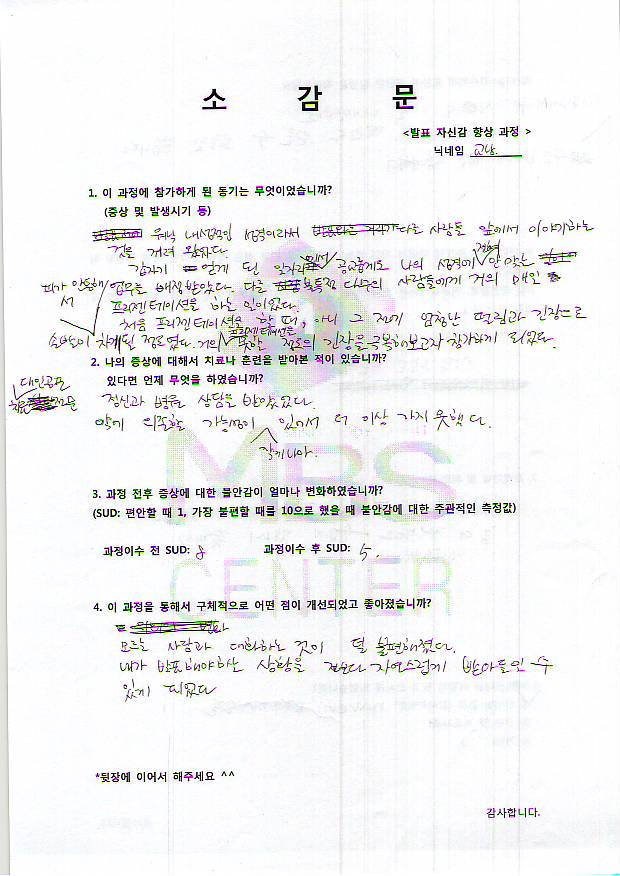 소 감 문
<발표 자신감 향상 과정 >
닉네임
1. 이 과정에 참가하게 된 동기는 무엇이었습니까?
(증상 및 발생시기 등)
워낙 내성적인 성격이라서 다른 사람들 앞에서 이야기하는
것을 꺼려 왔었다.
갑자기 얻게 된 일자리에서 공교롭게도 나의 성격에 전혀 안 맞는
업무를 배정받았다. 다름 불특정 다수의 사람들에게 거의 매일
프리젠테이션을 하는 일이었다.
처음 프리젠테이션을 할 때, 아니 그 전에 엄청난 떨림과 긴장으로
피가 안통해서
손발이 차게된 정도였다. 거의 프리젠테이션을 못할 정도의 긴장을 극복해보고자 참가하게 되었다.
2. 나의 증상에 대해서 치료나 훈련을 받아본 적이 있습니까?
있다면 언제 무엇을 하였습니까?
대인공포
정신과 병원 상담을 받았었다.
약에 의존할 가능성이 있어서 더 이상 가지 못했다.
작게나마.
3. 과정 전후 증상에 대한 불안감이 얼마나 변화하였습니까?
(SUD: 편안할 때 1, 가장 불편할 때를 10으로 했을 때 불안감에 대한 주관적인 측정값)
과정이수 전 SUD: 8 과정이수 후 SUD: 5.
4. 이 과정을 통해서 구체적으로 어떤 점이 개선되었고 좋아졌습니까?
모르는 사람과 대화하는 것이 덜 불편해졌다.
내가 발표해야하는 상황을 전보다 자연스럽게 받아들일 수
있게 되었다
MBS
CENTER
*뒷장에 이어서 해주세요 ^^
감사합니다.